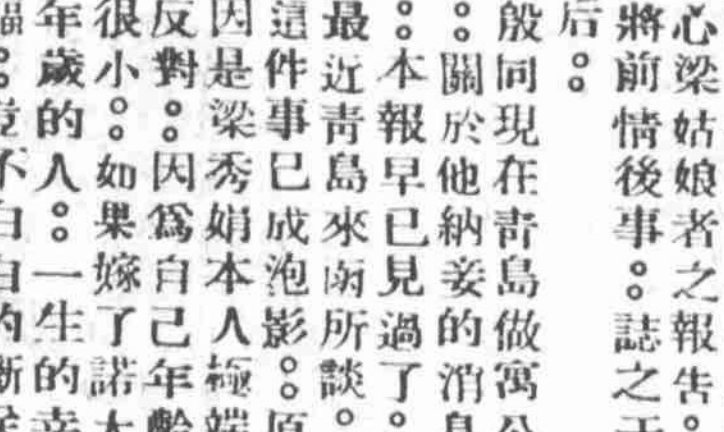 心梁姑娘者之報告。
將前情後事。。誌之于
后。。
殷同現在青島做寓公
。。關於他納妾的消息
。。本報早已見過了。
最近青島來函所談。
這件事已成泡影。。原
因是梁秀娟本人極端
反對。。因爲自己年齡
很小。。如果嫁了諾大
年歲的人。。一生的幸
福。。豈不白白的斷